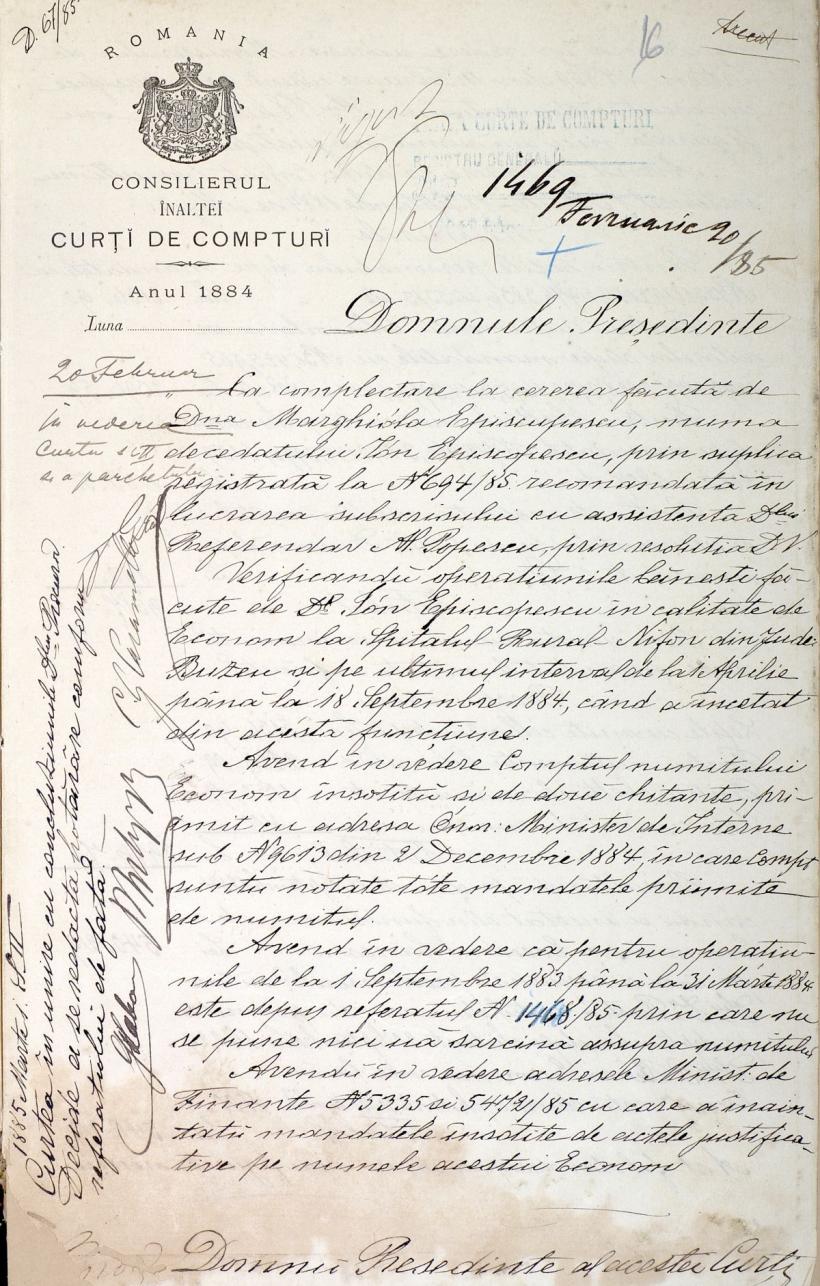 D. 67/85
16
trecut
ROMANIA
CONSILIERUL
ÎNALTEĬ
CURŢĬ DE COMPTURĬ
Anul 1884
Luna
CURTE DE COMPTURI
REGISTRU GENERALŬ
1469
Fevruarie 20/85
Domnule Preşedinte
20 Februar
în vederea
Curtei s. II
si a parchetului
Ca complectare la cererea făcută de
Dna Marghióla Episcupescu, muma
decedatului Ión Episcopescu, prin suplica
registrată la N 694/85 recomandată în
lucrarea subscrisului cu assistenta Dlui
Referendar Al. Popescu, prin resolutia D.V.
Verificandŭ operatiunile bănesti fă-
cute de Dl Ión Episcopescu in calitate de
Econom la Spitalul Rural Nifon din Jude:
Buzeu si pe ultimul interval de la 1 Aprilie
până la 18 Septembre 1884, când a incetat
din acésta funcţiune.
Avend in vedere Comptul numitului
Econom însotitŭ si de doue chitante, pri-
imit cu adresa Onor: Minister de Interne
sub N 9613 din 2 Decembre 1884, in care Compt
suntŭ notate tóte mandatele priimite
de numitul.
Avend în vedere că pentru operatiu-
nile de la 1 Septembre 1883 până la 31 Marte 1884
este depus referatul N. 1468/85 prin care nu
se pune nici uă sarcină assupra numitului
Avendŭ in vedere adresele Minist: de
Finante N 5335 si 5472/85 cu care a înain-
tatŭ mandatele însotite de actele justifica-
tive pe numele acestui Econom
Domnŭ Presedinte al acestei Curti
1885 Marte 1. S. II
Curtea în unire cu conclusiunile Dlui Procuror
Decide a se redacta hotărâre conform
referatului de faţă.